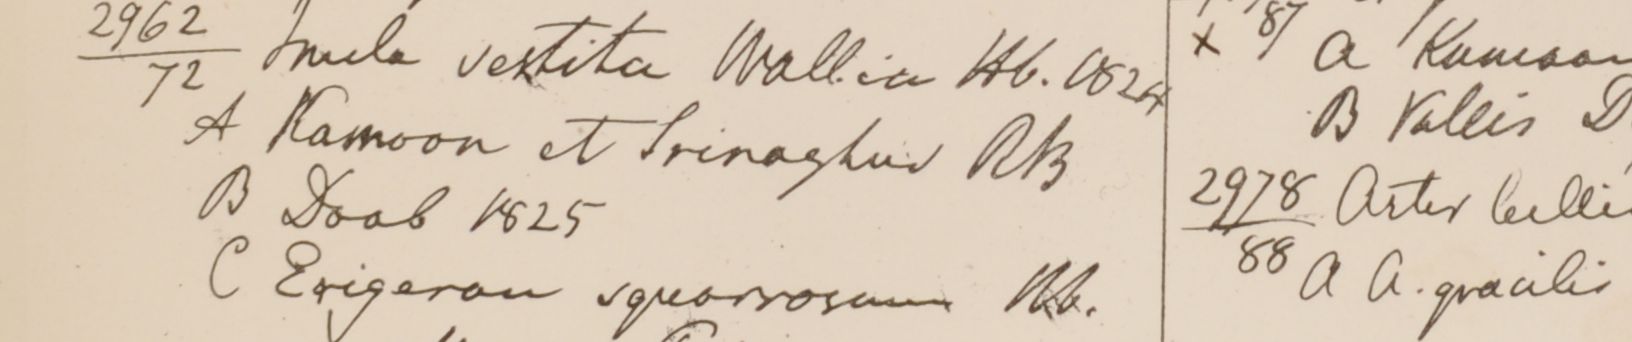 2962
72 Inula vestita Wallich Hb. 1824
A Kamoon et Srinaghur RB
B Doab 1825
C Erigeron squarrosum Hb.
x 87
a Kumaon
B Vallis D
2978 Aster belli
88
a A. gracilis